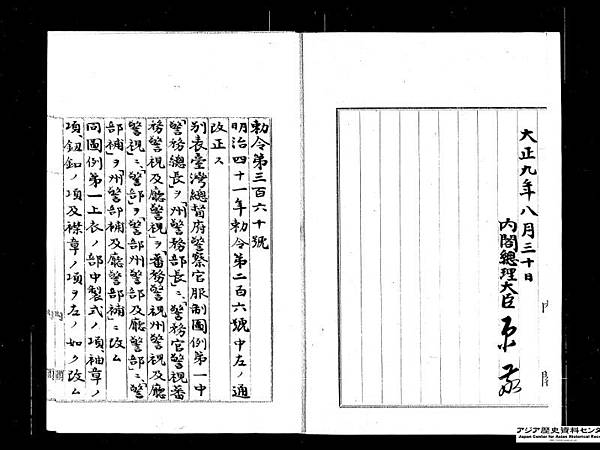 大正九年八月三十日
内閣總理大臣 原敬
勅令第三百六十號
明治四十一年勅令第二百六號中左ノ通
改正ス
別表臺灣總督府警察官服制圖例第一中
「警務總長」ヲ「州警務部長」ニ、「警務官警視蕃
務警視及廳警視」ヲ「蕃務警視州警視及廳
警視」ニ、「警部」ヲ「警部州警部及廳警部」ニ、「警
部補」ヲ「州警部補及廳警部補」ニ改ム
同圖例第一上衣ノ部中製式ノ項、袖章ノ
項、鈕釦ノ項及襟章ノ項ヲ左ノ如ク改ム
内閣
アジア歴史資料センタ
Japan Center for Asian Historical Reco